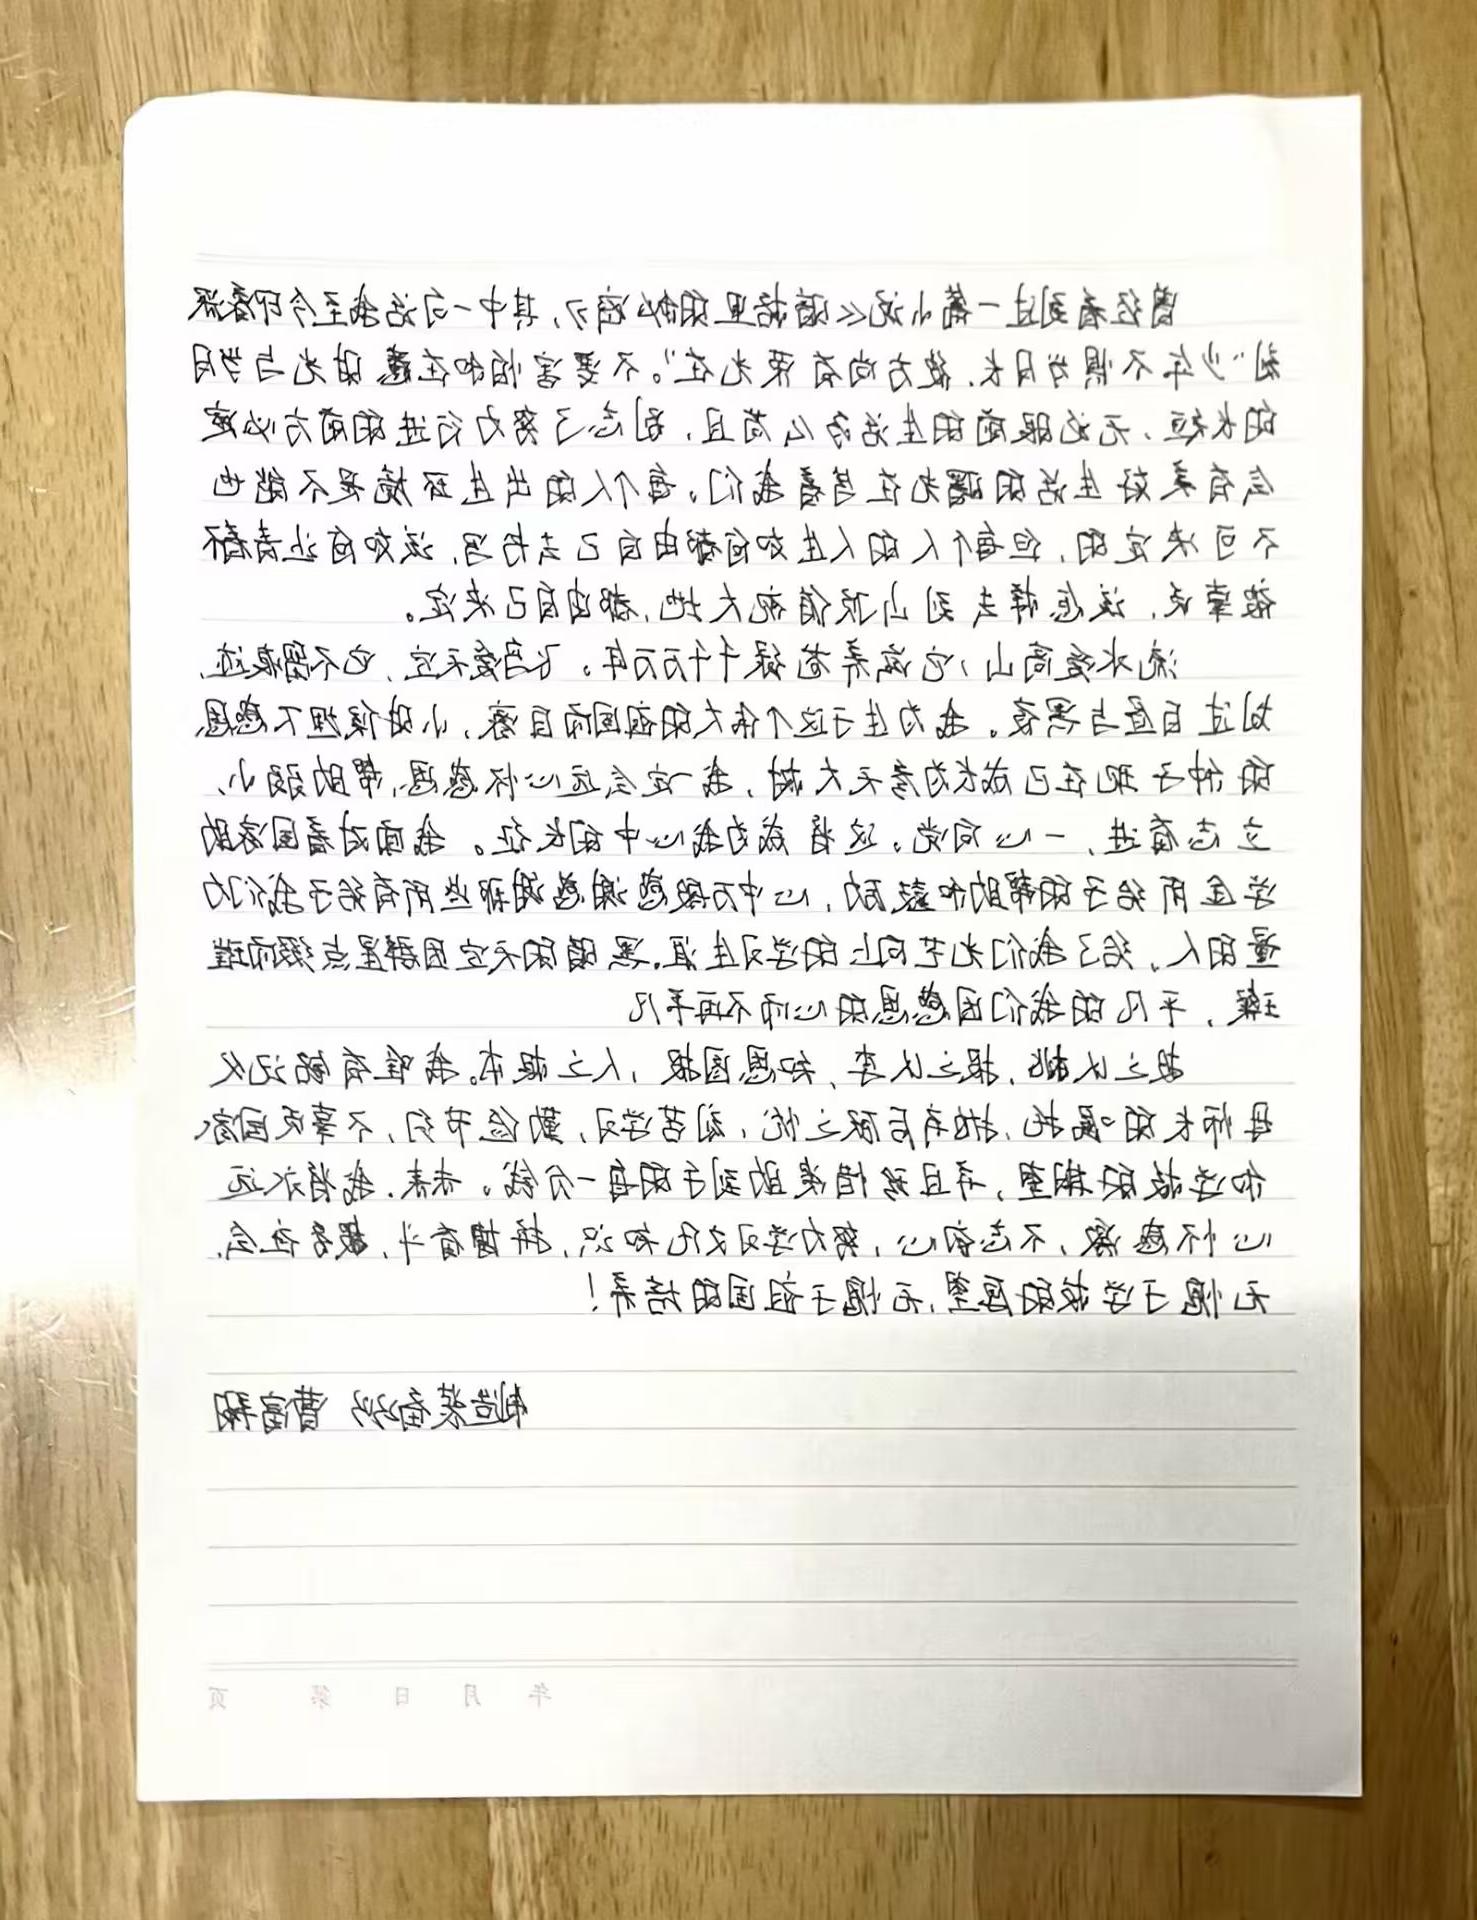 曾经看到过一篇小说《暗格里的秘密》,其中一句话我至今印象深
刻“少年不惧岁月长,彼方尚有荣光在”。不要害怕和在意时光与岁月
的长短,无论眼前的生活多么苟且,别忘了努力行进的前方必定
会有美好生活的曙光在等着我们。每个人的出生环境是不能也
不可决定的,但每个人的人生如何都由自己去书写,该如何让青春不
被辜负,该怎样去到山顶俯视大地,都由自己决定。
流水爱高山,它滋养苍绿千千万万年。飞鸟爱天空,它不留痕迹,
划过白昼与黑夜。我为生于这个伟大的祖国而自豪,小时候埋下感恩
的种子现在已成长为参天大树,我一定会远心怀感恩,帮助弱小,
立志奋进,一心向党。这将成为我心中的长征。我面对着国家助
学金所给予的帮助和鼓励,心中万般感谢感谢那些所有给予我们力
量的人,给了我们光芒向上的学习生涯。黑暗的天空因群星点缀而璀
璨,平凡的我们因感恩的心而不再平凡
投之以桃,报之以李,知恩图报,人之根本。我唯有铭记父
母师长的嘱托,抛弃后顾之忧,刻苦学习,勤俭节约,不辜负国家
和学校的期望,并且珍惜资助到手的每一分钱。未来,我将永远
心怀感激,不忘初心,努力学习文化知识,拼搏奋斗,服务社会,
无愧于学校的愿望,无愧于祖国的培养!
制造装备 曹富翔
年 月 日 第 页